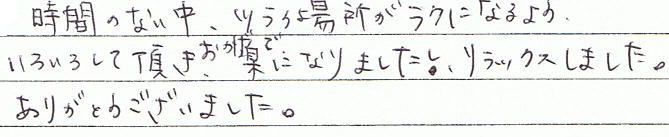 時間のない中、ツライ場所がラクになるよう、
いろいろして頂き、おかげで楽になりましたし、リラックスしました。
ありがとうございました。